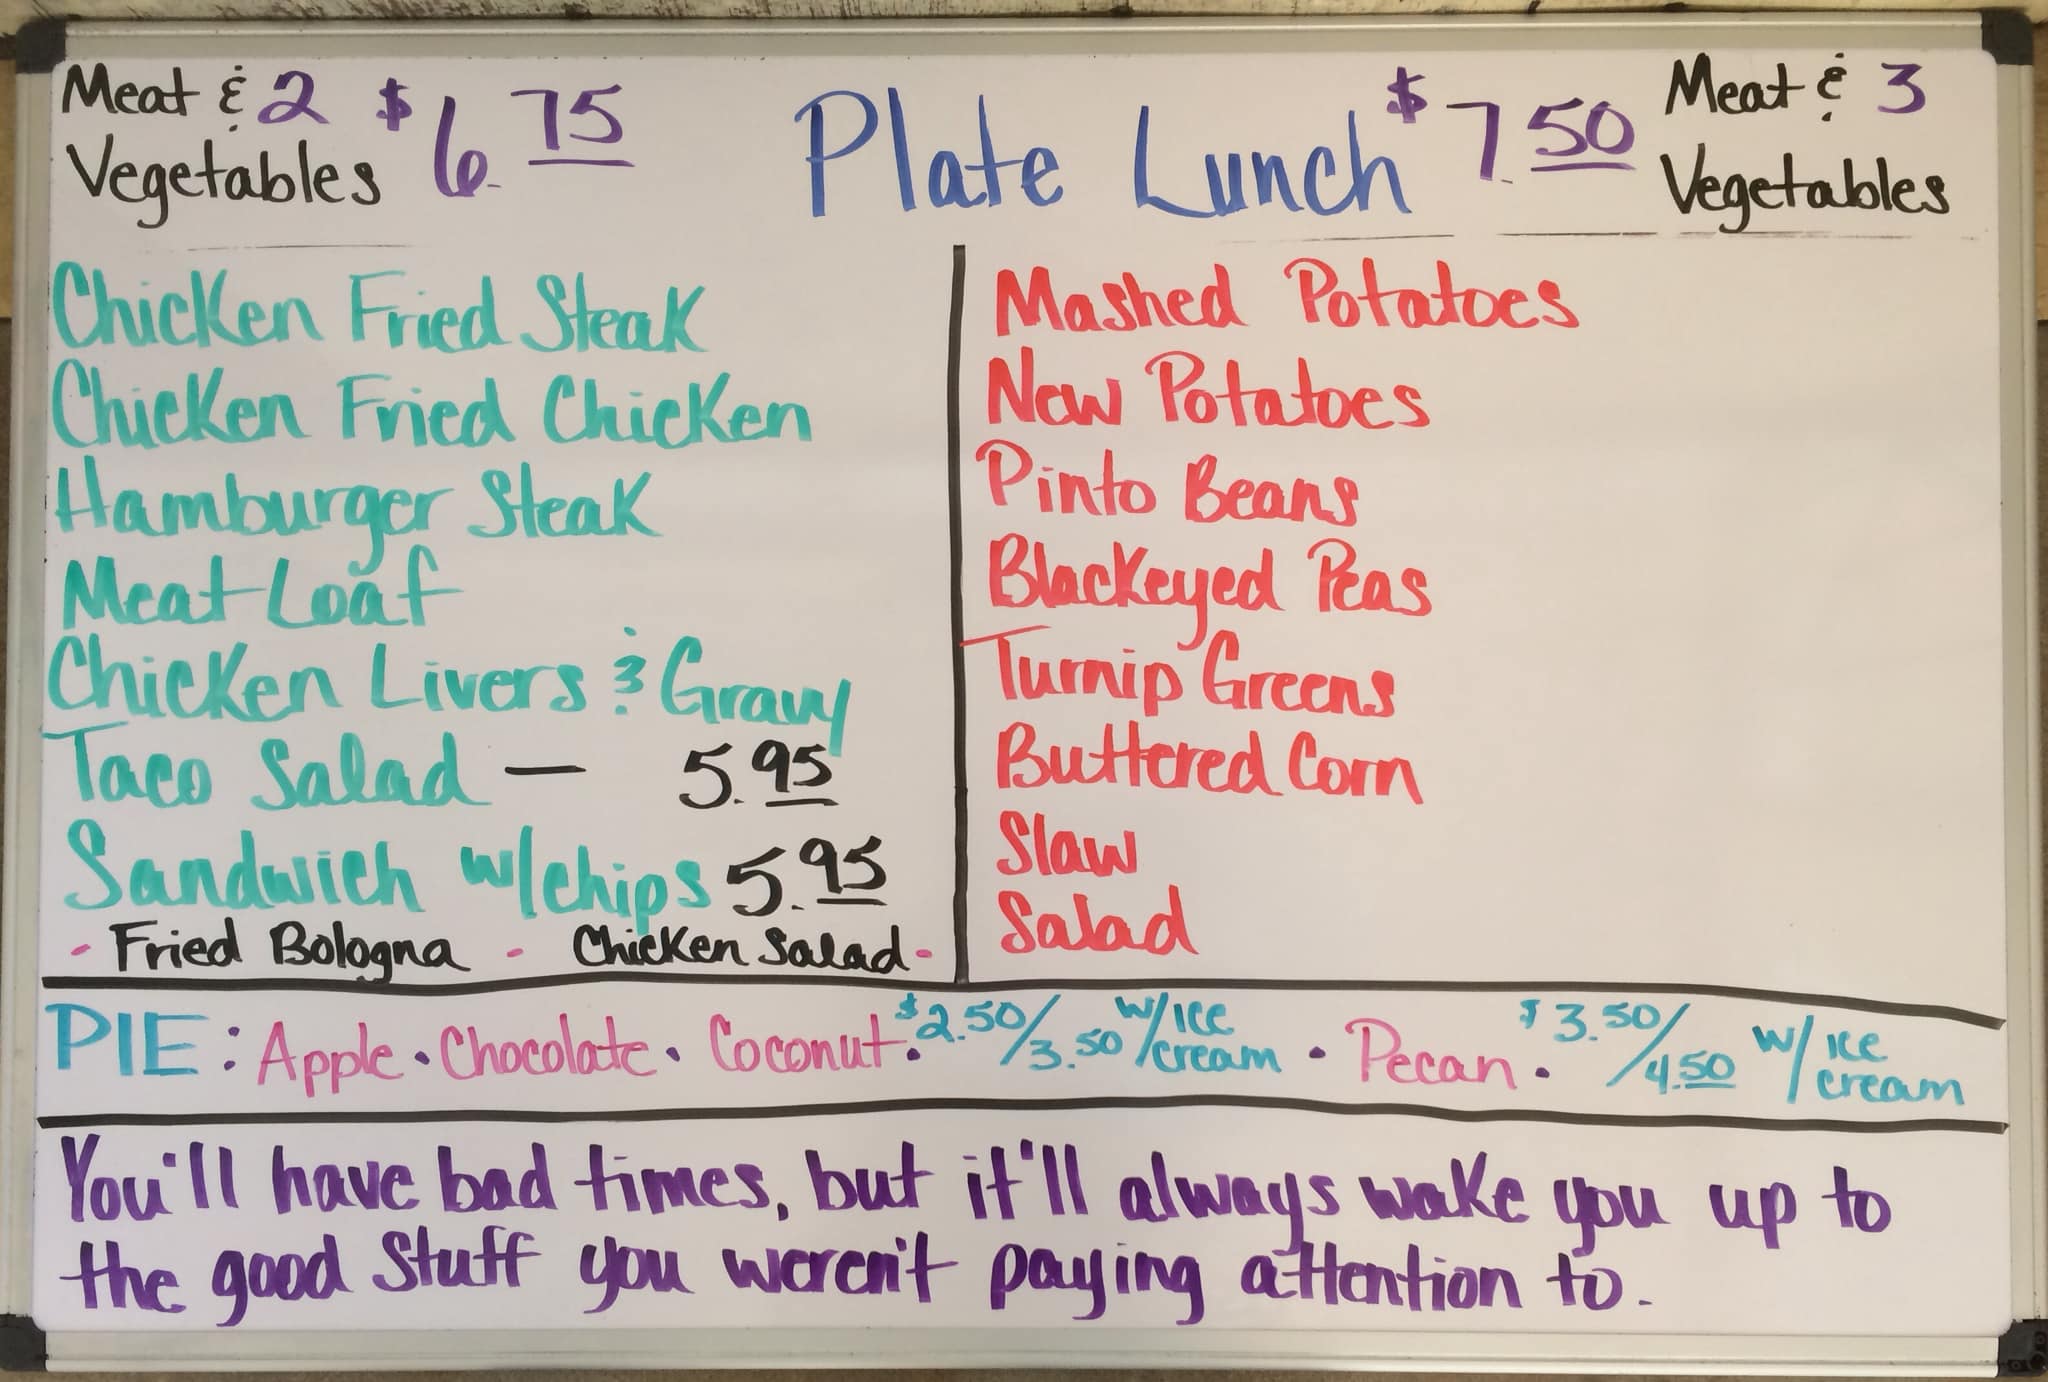 Meat & 2 Vegetables $6.75
Plate Lunch
$7.50 Meat & 3 Vegetables
Chicken Fried Steak
Chicken Fried Chicken
Hamburger Steak
Meat Loaf
Chicken Livers & Gravy
Taco Salad — 5.95
Sandwich w/chips 5.95
- Fried Bologna - Chicken Salad -
Mashed Potatoes
New Potatoes
Pinto Beans
Blackeyed Peas
Turnip Greens
Buttered Corn
Slaw
Salad
PIE: Apple • Chocolate • Coconut • $2.50/3.50 w/ice cream • Pecan • $3.50/4.50 w/ice cream
You'll have bad times, but it'll always wake you up to
the good stuff you weren't paying attention to.